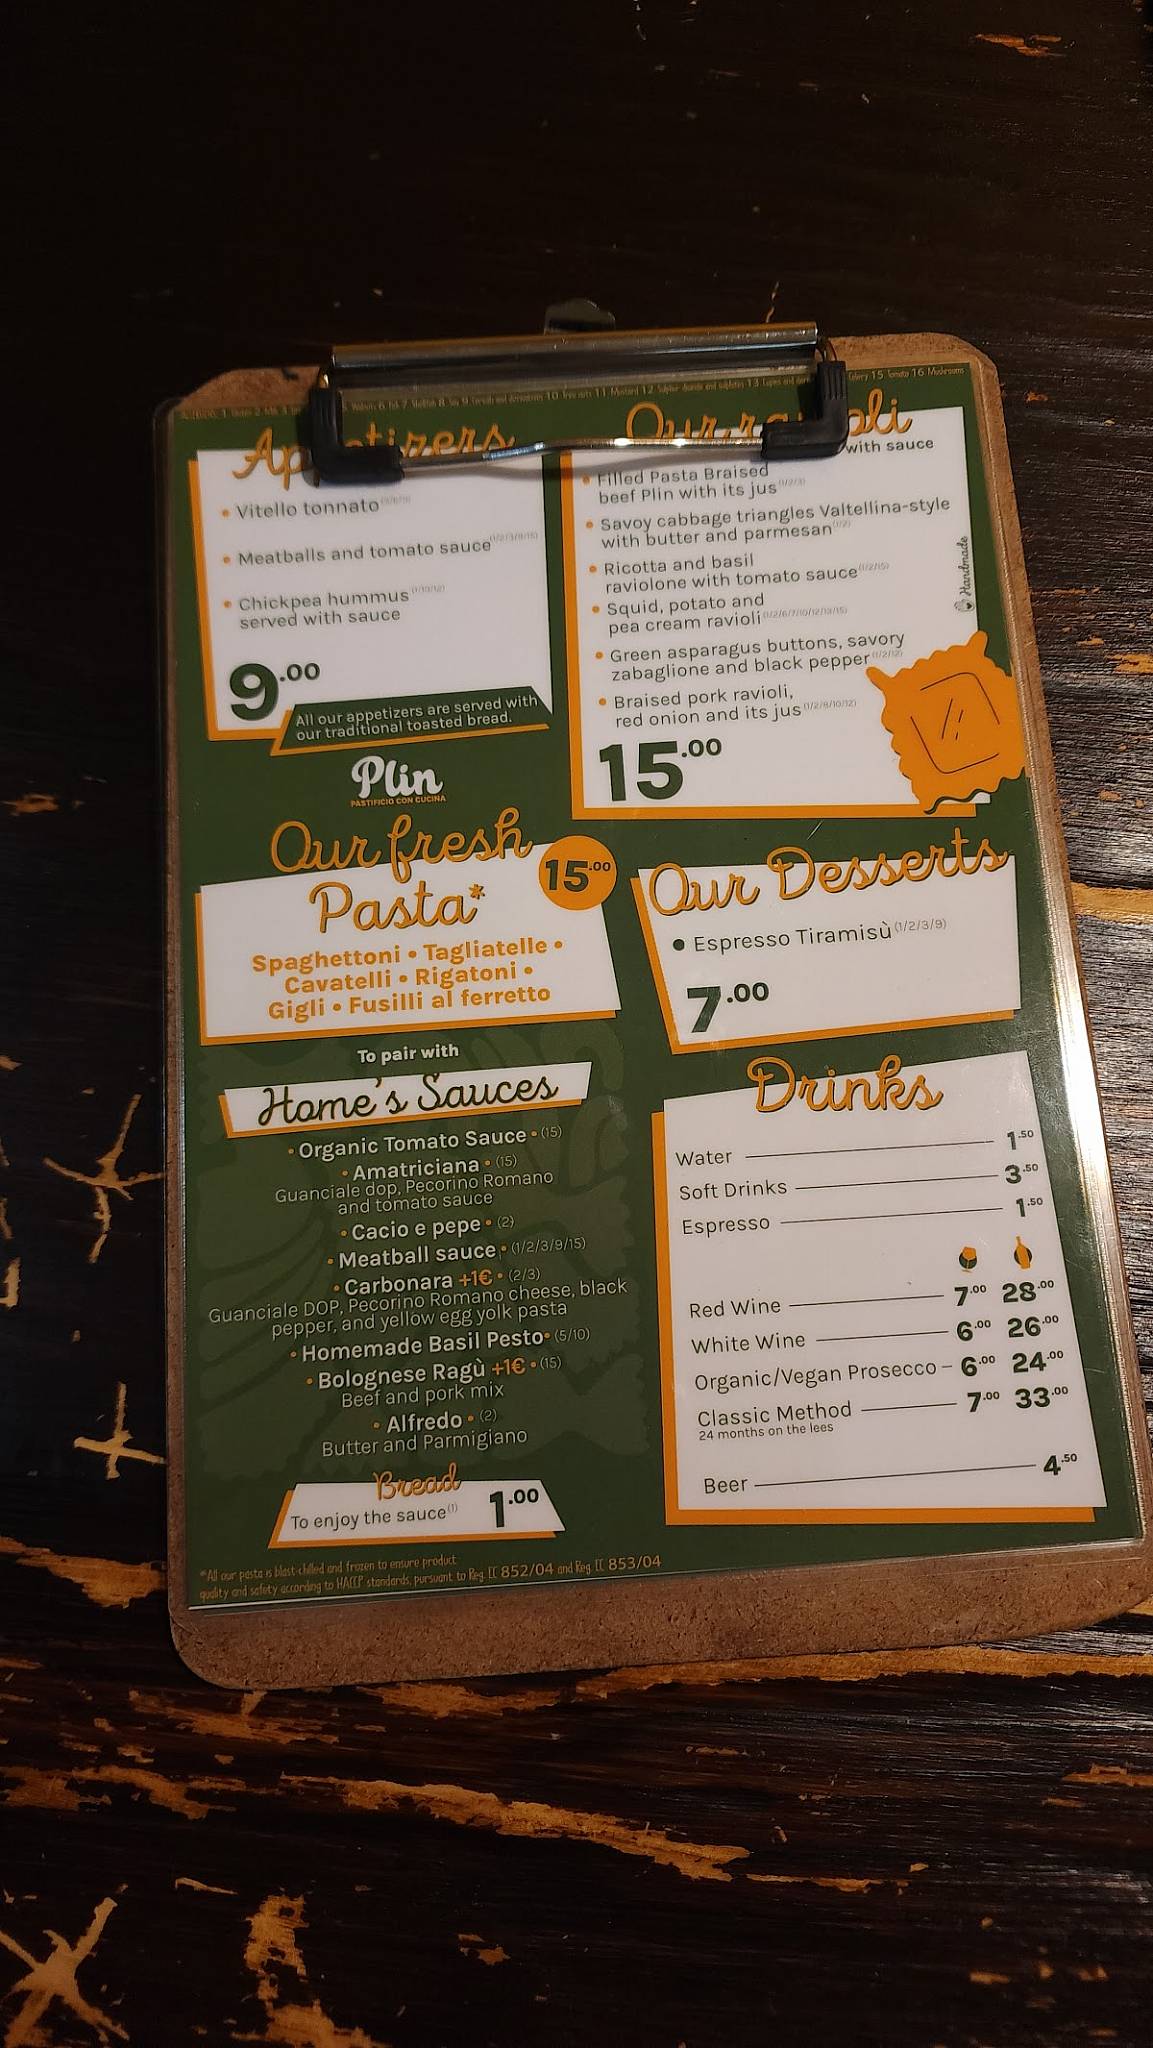 Appetizers
• Vitello tonnato
• Meatballs and tomato sauce (1/2/3/9/15)
• Chickpea hummus (1/10/12)
served with sauce
9.00
All our appetizers are served with
our traditional toasted bread.
Our ravioli
with sauce
• Filled Pasta Braised
beef Plin with its jus (1/2/3)
• Savoy cabbage triangles Valtellina-style
with butter and parmesan (1/2)
• Ricotta and basil
raviolone with tomato sauce (1/2/15)
• Squid, potato and
pea cream ravioli
• Green asparagus buttons, savory
zabaglione and black pepper
• Braised pork ravioli,
red onion and its jus (1/2/9/10/12)
Handmade
15.00
Plin
PASTIFICIO CON CUCINA
Our fresh
Pasta*
15.00
Spaghettoni • Tagliatelle •
Cavatelli • Rigatoni •
Gigli • Fusilli al ferretto
To pair with
Home's Sauces
• Organic Tomato Sauce • (15)
• Amatriciana • (15)
Guanciale dop, Pecorino Romano
and tomato sauce
• Cacio e pepe • (2)
• Meatball sauce • (1/2/3/9/15)
• Carbonara +1€ • (2/3)
Guanciale DOP, Pecorino Romano cheese, black
pepper, and yellow egg yolk pasta
• Homemade Basil Pesto • (5/10)
• Bolognese Ragù +1€ • (15)
Beef and pork mix
• Alfredo • (2)
Butter and Parmigiano
Bread
To enjoy the sauce (1) 1.00
Our Desserts
• Espresso Tiramisù (1/2/3/9)
7.00
Drinks
Water 1.50
Soft Drinks 3.50
Espresso 1.50
Red Wine 7.00 28.00
White Wine 6.00 26.00
Organic/Vegan Prosecco 6.00 24.00
Classic Method 7.00 33.00
24 months on the lees
Beer 4.50
*All our pasta is blast-chilled and frozen to ensure product
quality and safety according to HACCP standards, pursuant to Reg. EC 852/04 and Reg. EC 853/04